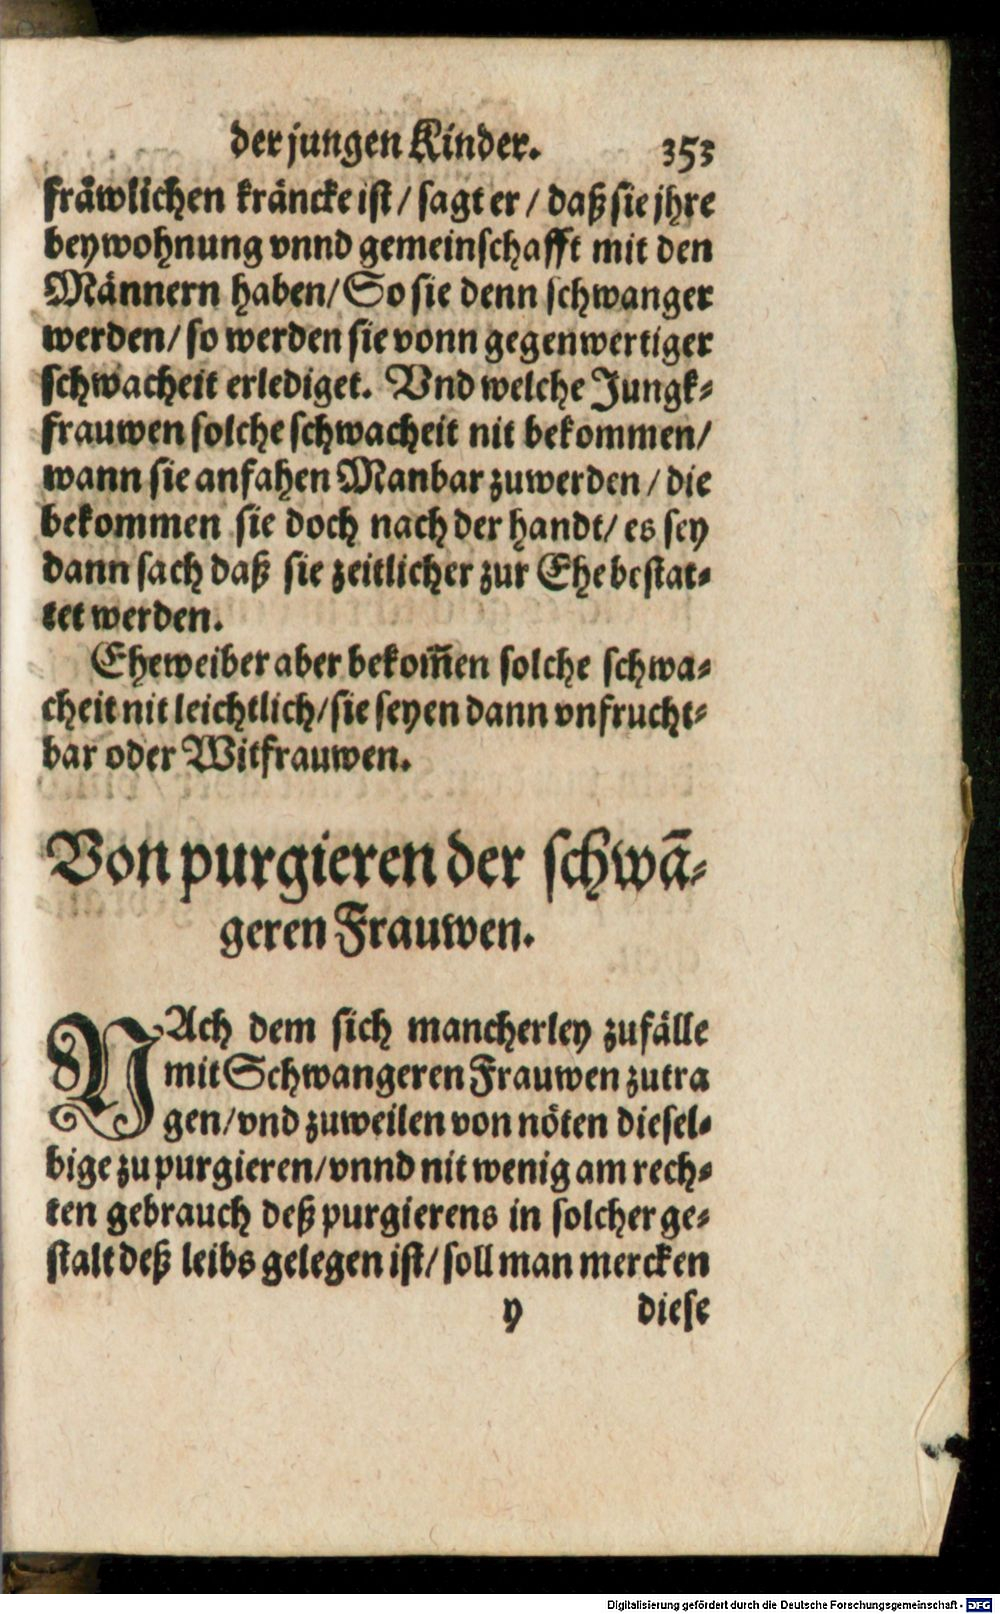 der jungen Kinder. 353
fräwlichen kräncke ist / sagt er / daß sie jhre
beywohnung vnnd gemeinschafft mit den
Männern haben / So sie denn schwanger
werden / so werden sie vonn gegenwertiger
schwacheit erlediget. Vnd welche Jungk⸗
frauwen solche schwacheit nit bekommen /
wann sie anfahen Manbar zuwerden / die
bekommen sie doch nach der handt / es sey
dann sach daß sie zeitlicher zur Ehe bestat⸗
tet werden.
Eheweiber aber bekom̃en solche schwa⸗
cheit nit leichtlich / sie seyen dann vnfrucht⸗
bar oder Witfrauwen.
Von purgieren der schwā⸗
geren Frauwen.
NAch dem sich mancherley zufälle
mit Schwangeren Frauwen zutra
gen / vnd zuweilen von nöten diesel⸗
bige zu purgieren / vnnd nit wenig am rech⸗
ten gebrauch deß purgierens in solcher ge⸗
stalt deß leibs gelegen ist / soll man mercken
y diese
Digitalisierung gefördert durch die Deutsche Forschungsgemeinschaft - DFG